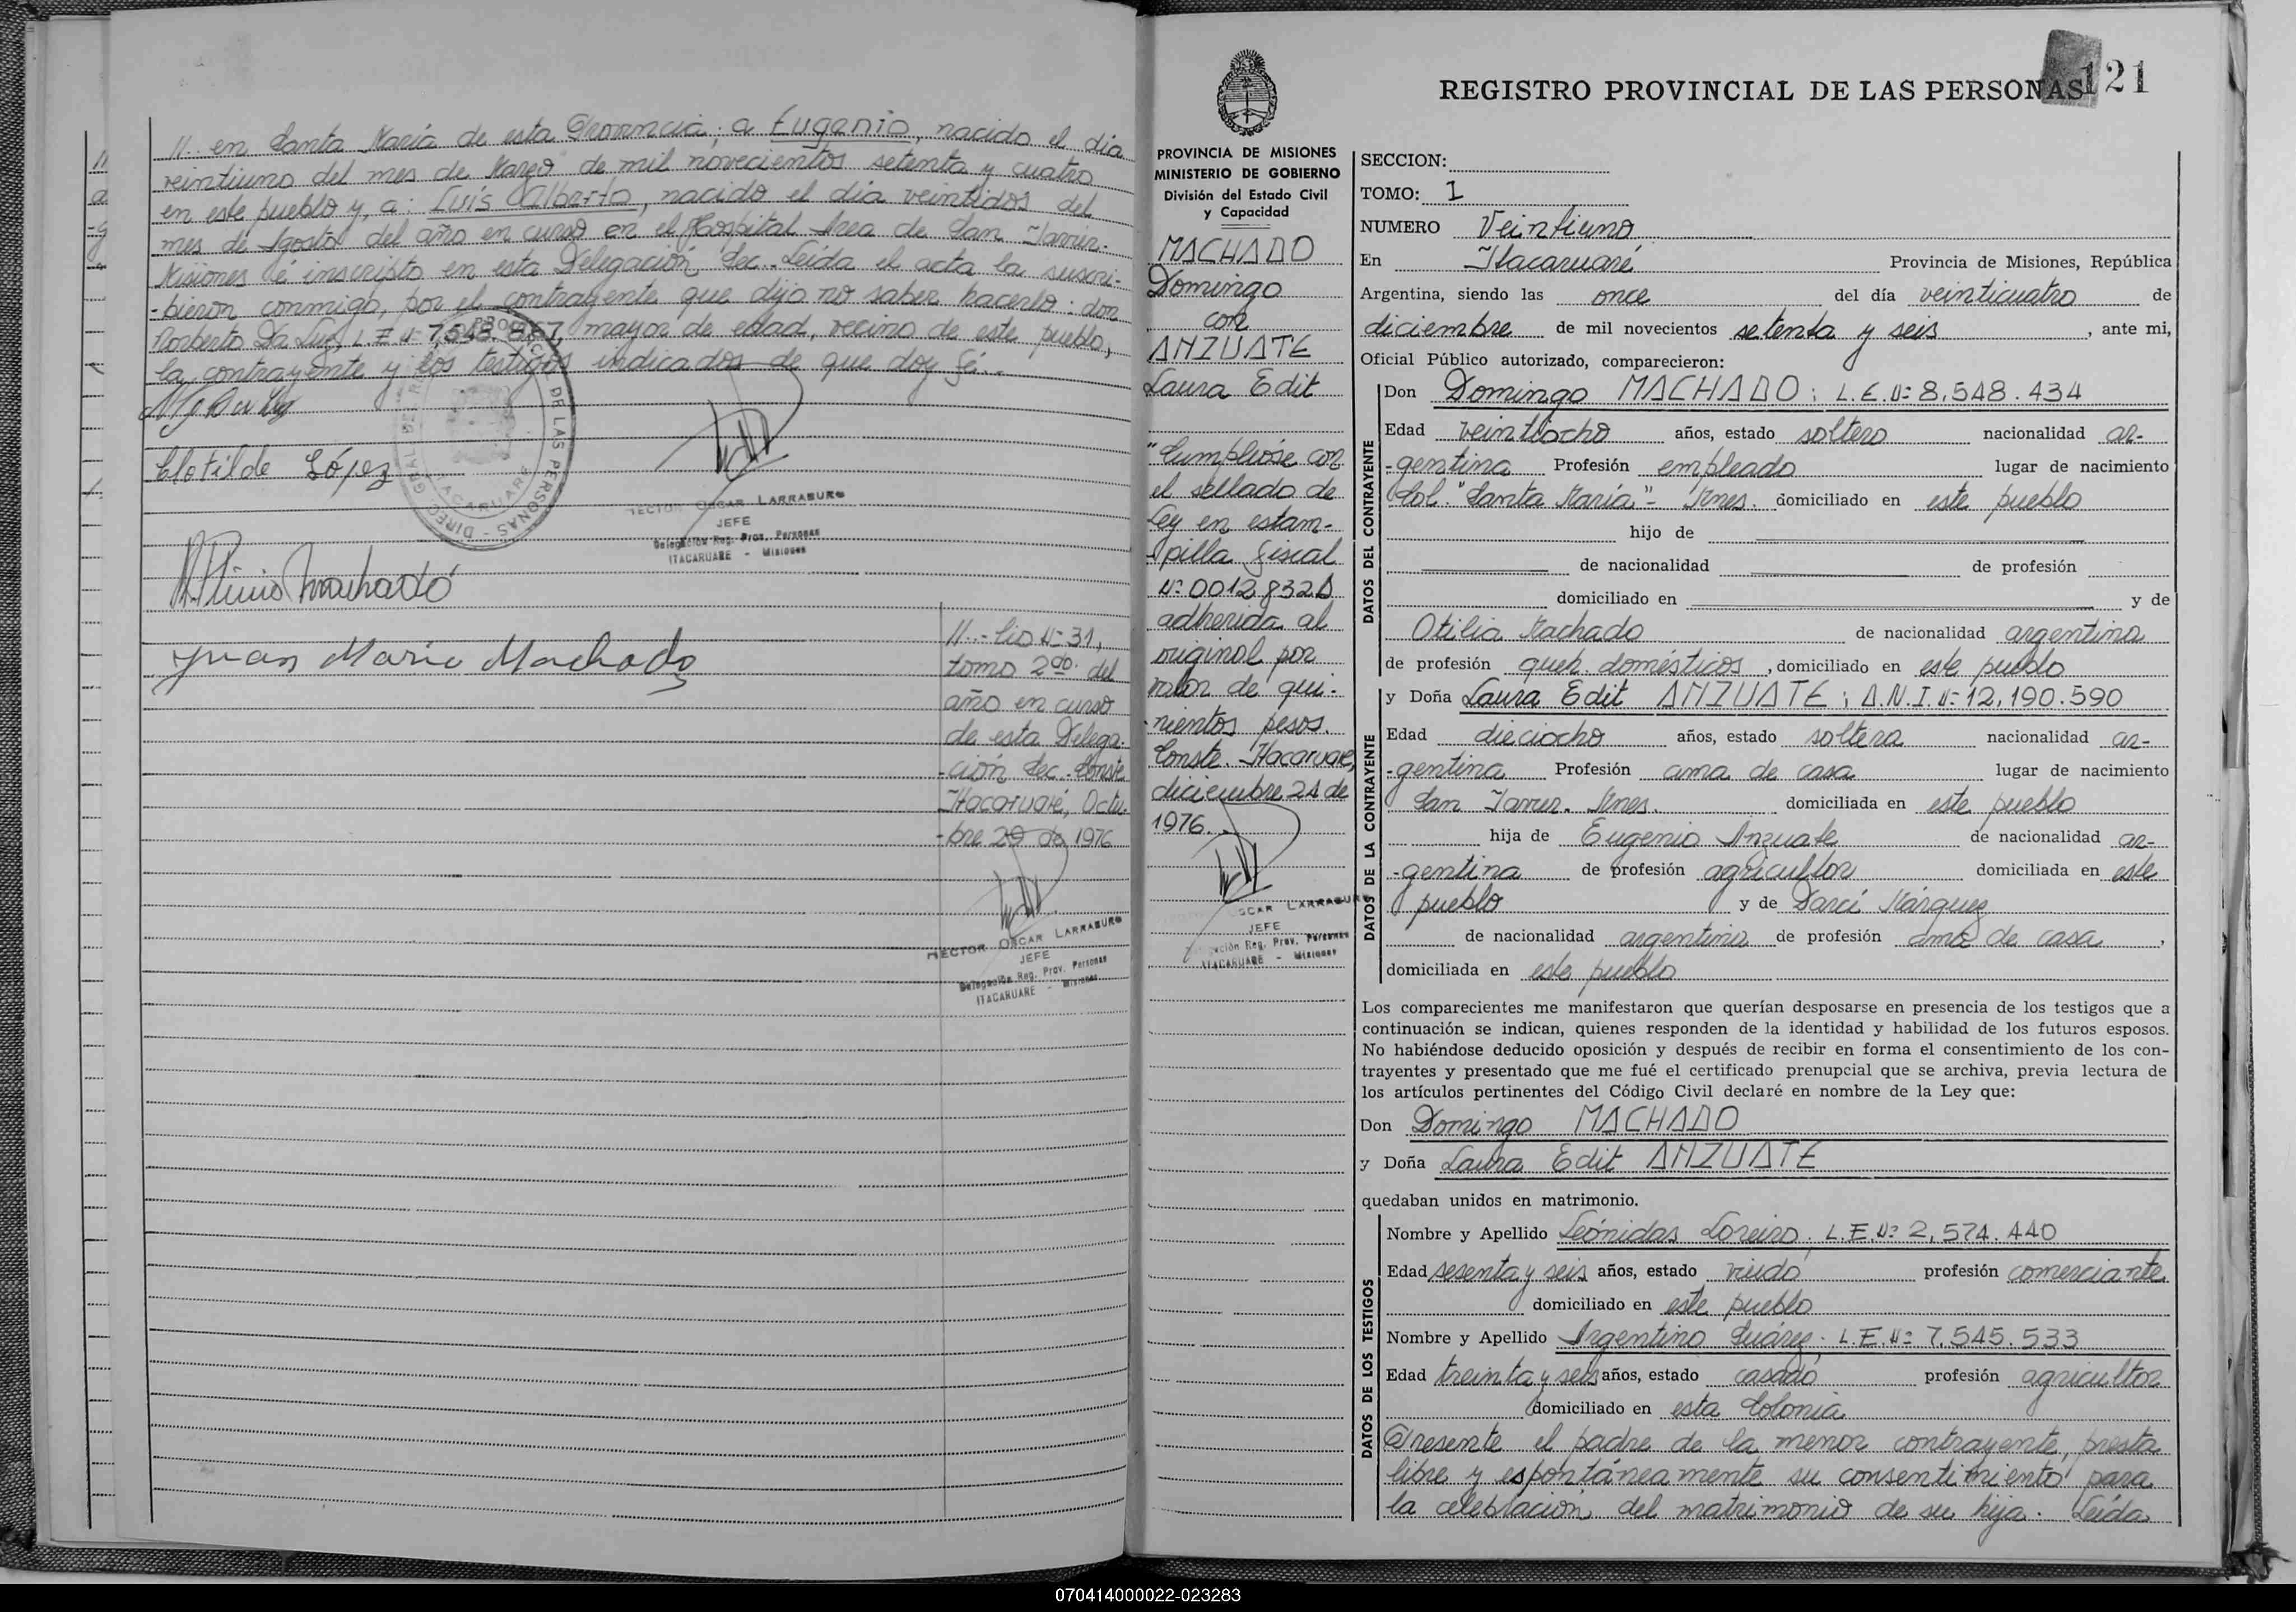 11.. en Santa María de esta Provincia; a Eugenio, nacido el día
veintiuno del mes de Marzo de mil novecientos setenta y cuatro
en este pueblo y, a: Luís Alberto, nacido el día veintidos del
mes de Agosto del año en curso en el Hospital Area de San Javier-
Misiones é inscripto en esta Delegación Sec.. Leída el acta la suscri-
-bieron conmigo, por el contrayente que dijo no saber hacerlo: don
Norberto Da Luz, L.E.Nº 7.548.867, mayor de edad, vecino de este pueblo,
la contrayente y los testigos indicados de que doy fé...
Clotilde López
HECTOR OSCAR LARRABURU
JEFE
Delegación Reg. Prov. Personas
ITACARUARE - Misiones
Plinio Machado
Juan María Machado
11..- Lio Nº 31,
tomo 2do. del
año en curso
de esta Delega-
-ción Sec.. Conste
Itacaruaré, Octu-
-bre 29 de 1976
HECTOR OSCAR LARRABURU
JEFE
Delegación Reg. Prov. Personas
ITACARUARE - Misiones
REGISTRO PROVINCIAL DE LAS PERSONAS
121
PROVINCIA DE MISIONES
MINISTERIO DE GOBIERNO
División del Estado Civil
y Capacidad
MACHADO
Domingo
con
ANZUATE
Laura Edit
"Cumplióse con
el sellado de
Ley en estam-
-pilla fiscal
adherida al
original por
valor de qui-
-nientos pesos.
Conste. Itacaruaré,
diciembre 24 de
1976..
OSCAR LARRABURU
JEFE
Delegación Reg. Prov. Personas
ITACARUARE - Misiones
SECCION:
TOMO: 1
NUMERO Veintiuno
En Itacaruaré Provincia de Misiones, República
Argentina, siendo las once del día veinticuatro de
diciembre de mil novecientos setenta y seis, ante mi,
Oficial Público autorizado, comparecieron:
DATOS DEL CONTRAYENTE
Don Domingo MACHADO; L.E.Nº 8.548.434
Edad veintiocho años, estado soltero nacionalidad ar-
-gentina Profesión empleado lugar de nacimiento
Col. "Santa María"- Mnes. domiciliado en este pueblo
hijo de
de nacionalidad de profesión
domiciliado en y de
Otilia Machado de nacionalidad argentina
de profesión queh. domésticos, domiciliado en este pueblo
DATOS DE LA CONTRAYENTE
y Doña Laura Edit ANZUATE; D.N.I.Nº 12.190.590
Edad dieciocho años, estado soltera nacionalidad ar-
-gentina Profesión ama de casa lugar de nacimiento
San Javier. Mnes. domiciliada en este pueblo
hija de Eugenio Anzuate de nacionalidad ar-
-gentina de profesión agricultor domiciliada en este
pueblo y de Darcí Márquez
de nacionalidad argentina de profesión ama de casa,
domiciliada en este pueblo
Los comparecientes me manifestaron que querían desposarse en presencia de los testigos que a
continuación se indican, quienes responden de la identidad y habilidad de los futuros esposos.
No habiéndose deducido oposición y después de recibir en forma el consentimiento de los con-
trayentes y presentado que me fué el certificado prenupcial que se archiva, previa lectura de
los artículos pertinentes del Código Civil declaré en nombre de la Ley que:
Don Domingo MACHADO
y Doña Laura Edit ANZUATE
quedaban unidos en matrimonio.
DATOS DE LOS TESTIGOS
Nombre y Apellido Leónidas Loreiro; L.E.Nº 2.574.440
Edad sesenta y seis años, estado viudo profesión comerciante
domiciliado en este pueblo
Nombre y Apellido Argentino Suárez; L.E.Nº 7.545.533
Edad treinta y seis años, estado casado profesión agricultor
domiciliado en esta Colonia
Presente el padre de la menor contrayente, presta
libre y espontáneamente su consentimiento para
la celebración del matrimonio de su hija. Leída
070414000022-023283